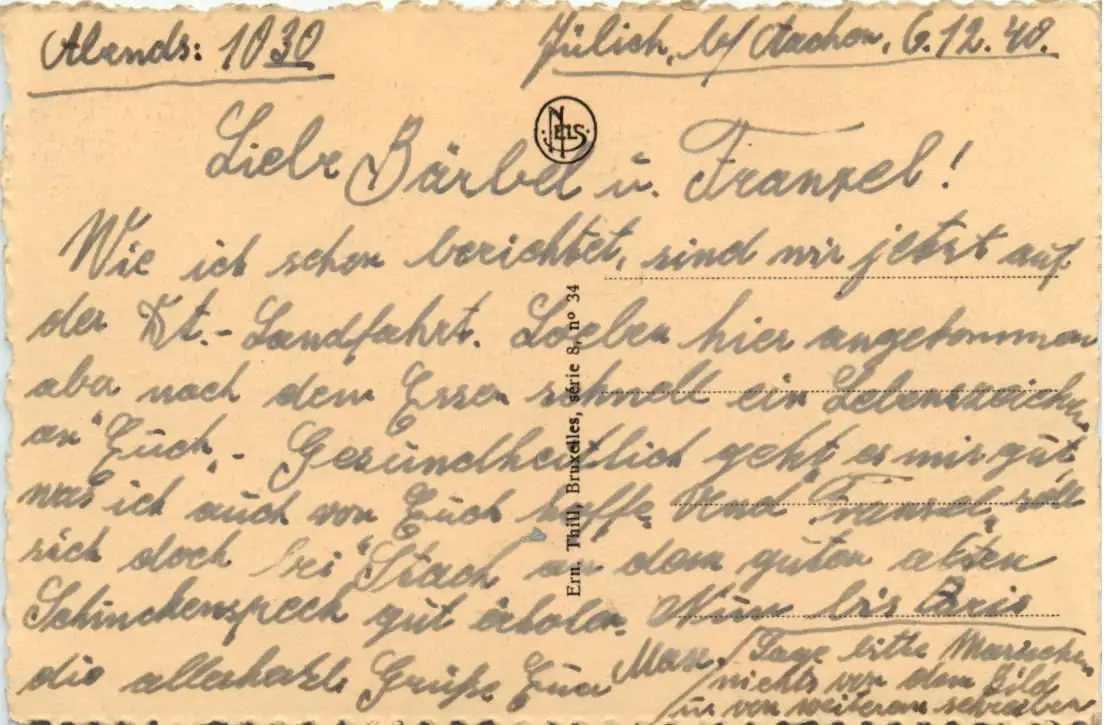 Abends: 10 30
Jülich, b/ Aachen, 6.12.40.
NELS
Liebe Bärbel u. Franzel!
Wie ich schon berichtet, sind wir jetzt auf
der Dt.-Landfahrt. Soeben hier angekommen
aber nach dem Essen schnell ein Lebenszeichen
an Euch. - Gesundheitlich geht es mir gut
was ich auch von Euch hoffe. Und "Franzel" soll
sich doch bei "Stach" an dem guten alten
Schinckenspeck gut erholen. Nun bis Paris
die allerherzl. Grüße Euer Max.
/ Sage bitte Mariechen
nichts von dem Bild
u. von weiterem schreiben
Ern. Thill, Bruxelles, série 8, nº 34